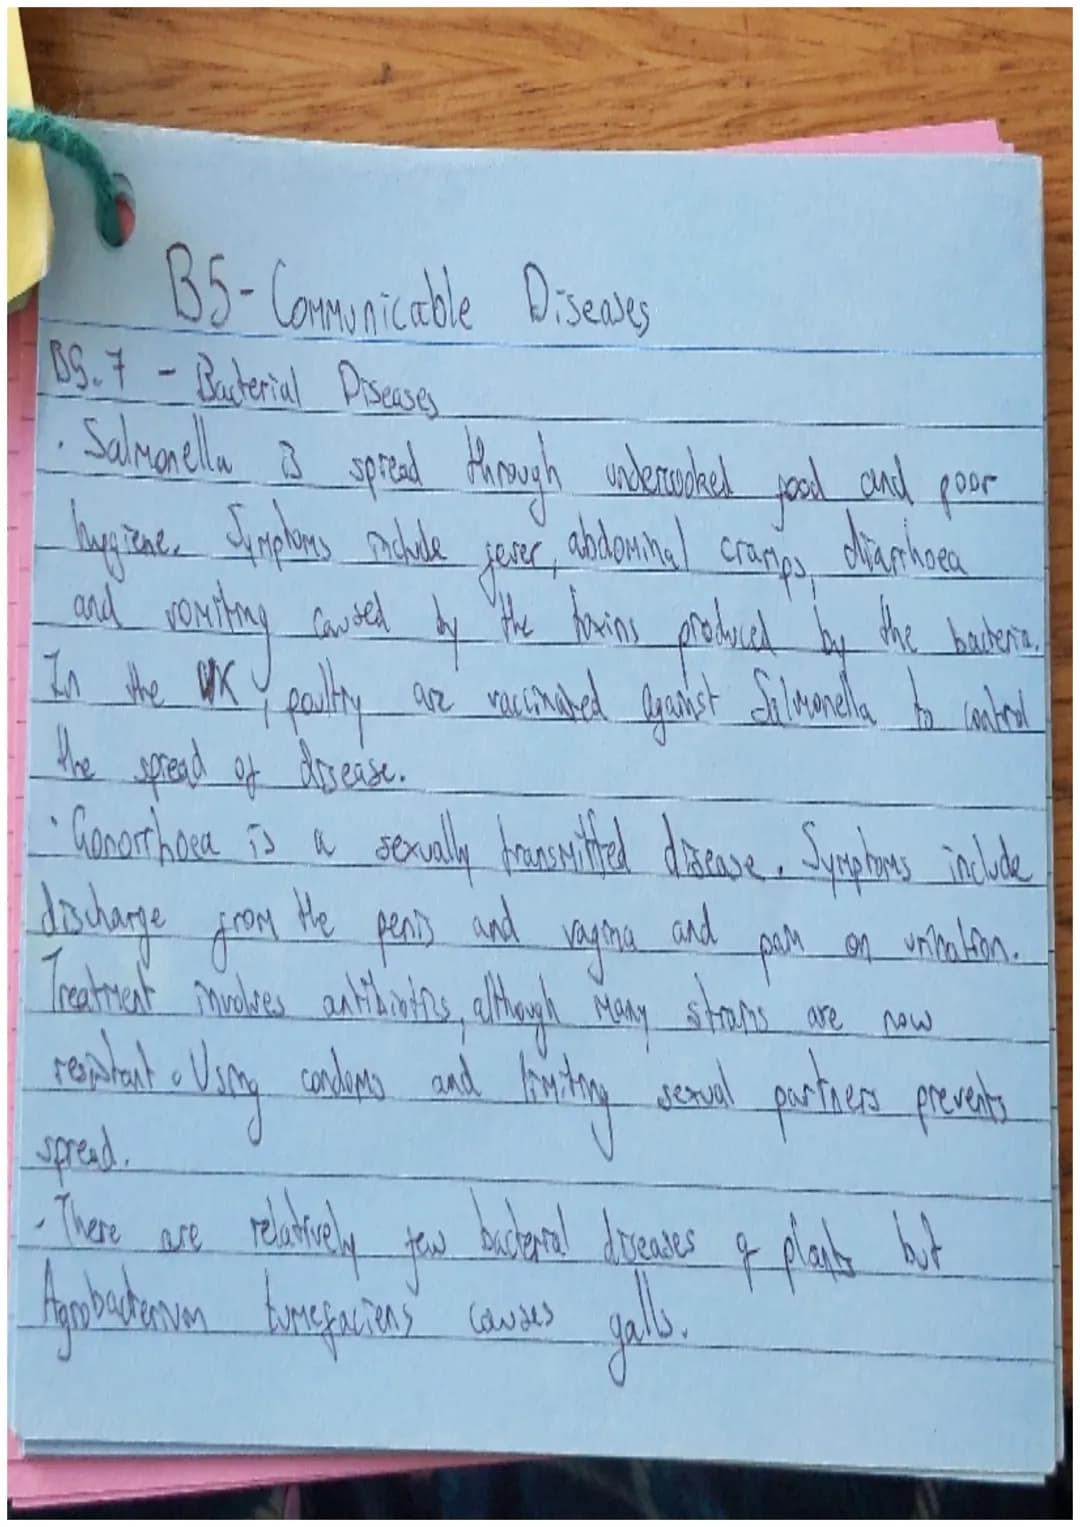 B5 - Communicable Diseases
B5.7 - Bacterial Diseases
· Salmonella is spread through undercooked food and poor
hygiene. Symptoms include fever, abdominal cramps, diarrhoea
and vomiting caused by the toxins produced by the bacteria.
In the UK, poultry are vaccinated against Salmonella to control
the spread of disease.
· Gonorrhoea is a sexually transmitted disease. Symptoms include
discharge from the penis and vagina and pain on urination.
Treatment involves antibiotics, although many strains are now
resistant. Using condoms and limiting sexual partners prevents
spread.
· There are relatively few bacterial diseases of plants but
Agrobacterium tumefaciens causes galls.